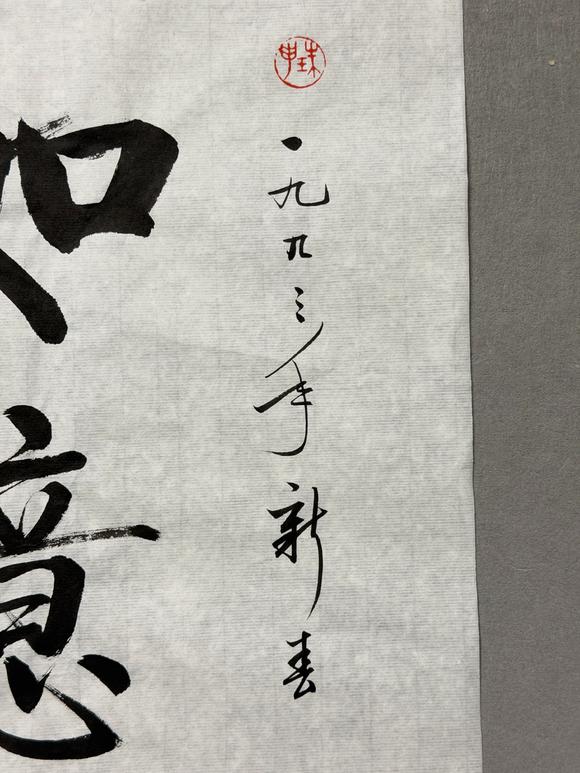 珠申
一九九三年新春
如意